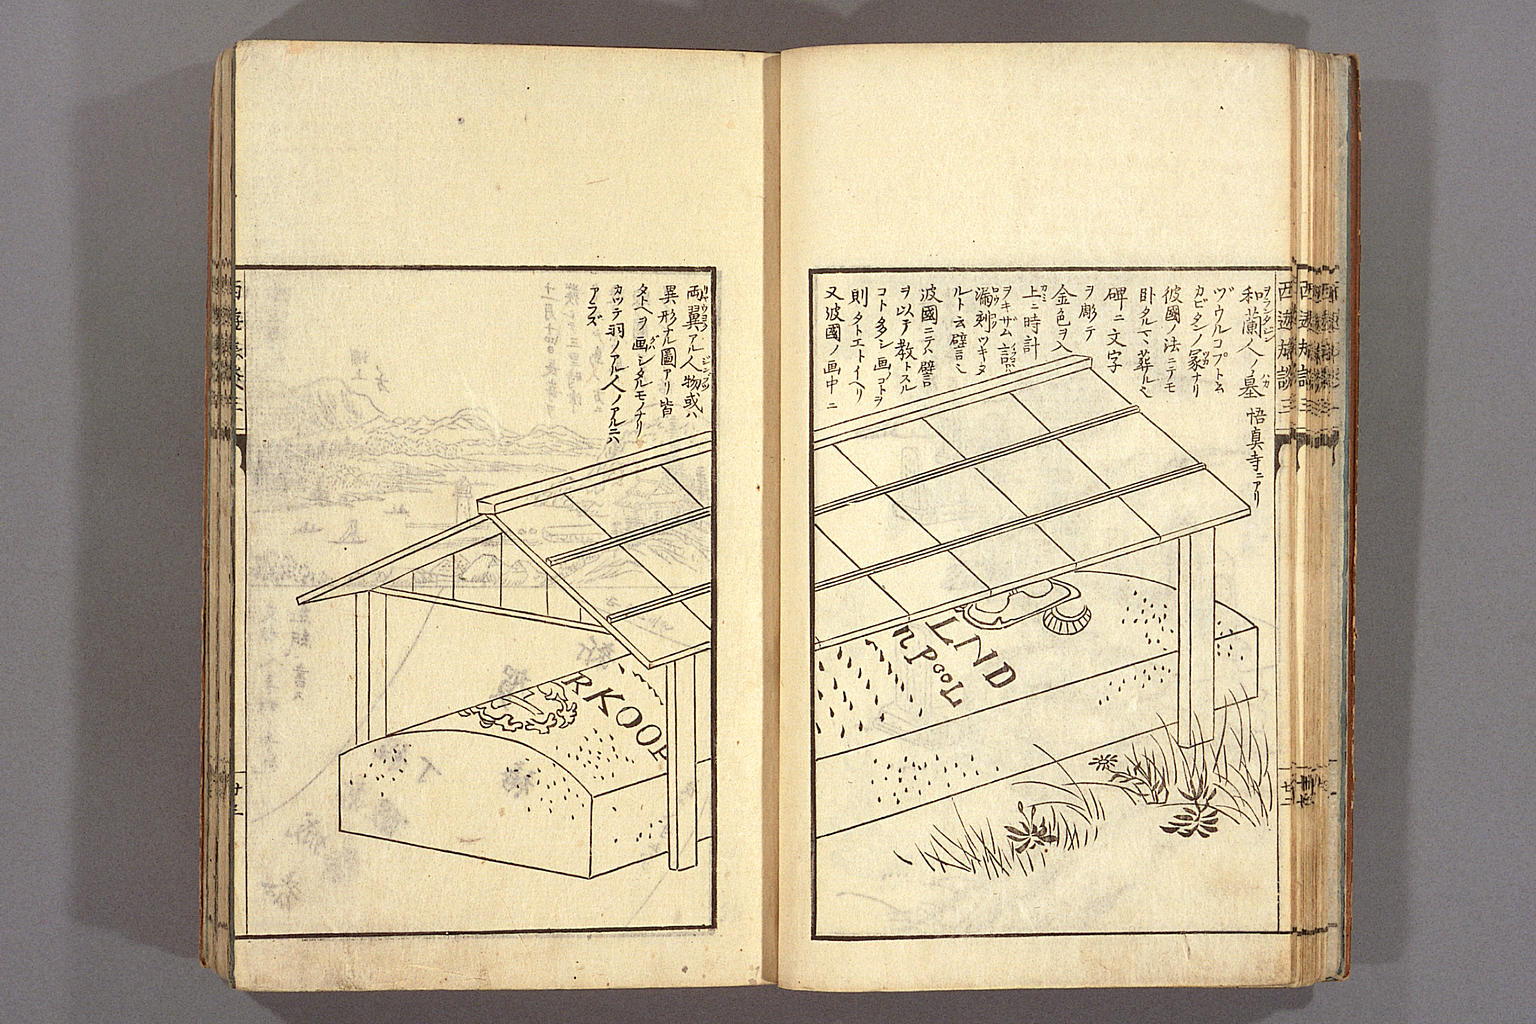 和蘭人ノ墓 悟真寺ニアリ
ヅウルコプトム
カビタンノ冢ナリ
彼國ノ法ニテモ
臥タルマヽ葬ルト
碑ニ文字
ヲ彫テ
金色ヲ入
上ニ時計
ヲキザム
漏刻ツキタ
ルト云譬ニ
波國ニテハ譬
ヲ以テ教トスル
コト多シ画コトヲ
則タトエトイヘリ
又波國ノ画中ニ
両翼アル人物或ハ
異形ナル圖アリ皆
タトヘヲ画シタルモノナリ
カツテ羽ノアル人ノアルニハ
アラズ
LND
npooL
RKOOP
西遊旅譚三